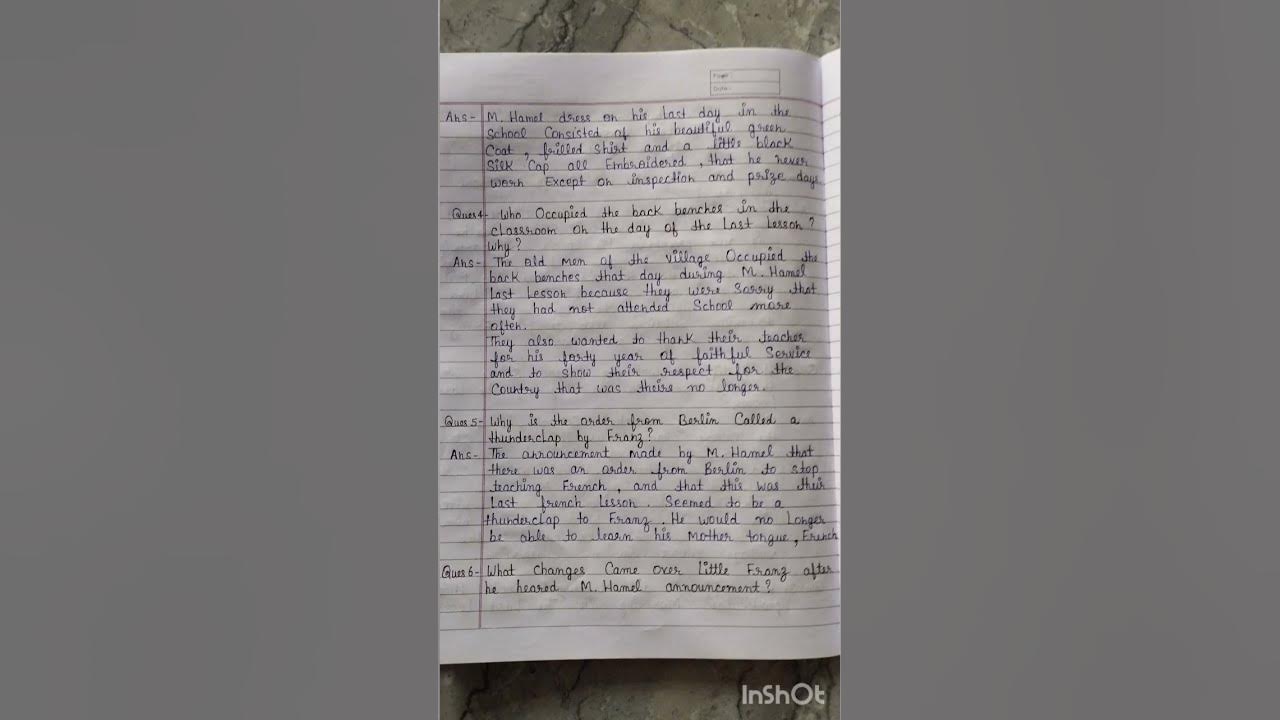 Page:
Date:
Ans- M. Hamel dress on his last day in the
School Consisted of his beautiful green
Coat, frilled shirt and a little black
Silk Cap all Embroidered, that he never
worn Except on inspection and prize days
Ques 4- Who Occupied the back benches in the
classroom on the day of the Last Lesson?
Why?
Ans- The old men of the village Occupied the
back benches that day during M. Hamel
Last Lesson because they were Sorry that
they had not attended School more
often.
They also wanted to thank their teacher
for his forty year of faithful Service
and to show their respect for the
Country that was theirs no longer.
Ques 5- Why is the order from Berlin Called a
thunderclap by Franz?
Ans- The announcement made by M. Hamel that
there was an order from Berlin to stop
teaching French, and that this was their
Last french Lesson. Seemed to be a
thunderclap to Franz. He would no Longer
be able to learn his Mother tongue, French
Ques 6- What changes Came over little Franz after
he heared M. Hamel announcement?
InShOt